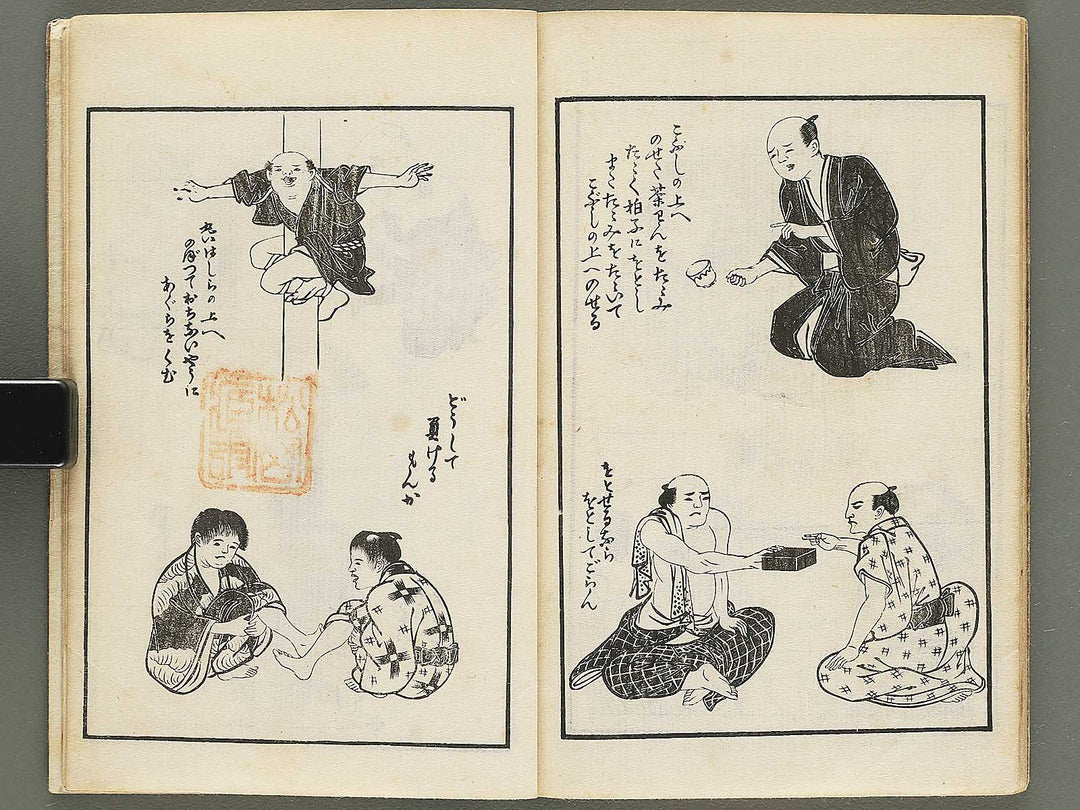 こぶしの上へ
のせた茶わんをたゝみ
たゝく拍子にをとし
またたゝみをたゝいて
こぶしの上へのせる
をとせるなら
をとしてごらん
はしらの上へ
のぼつておちないやうに
あぐらをくむ
どうして
負ける
もんか